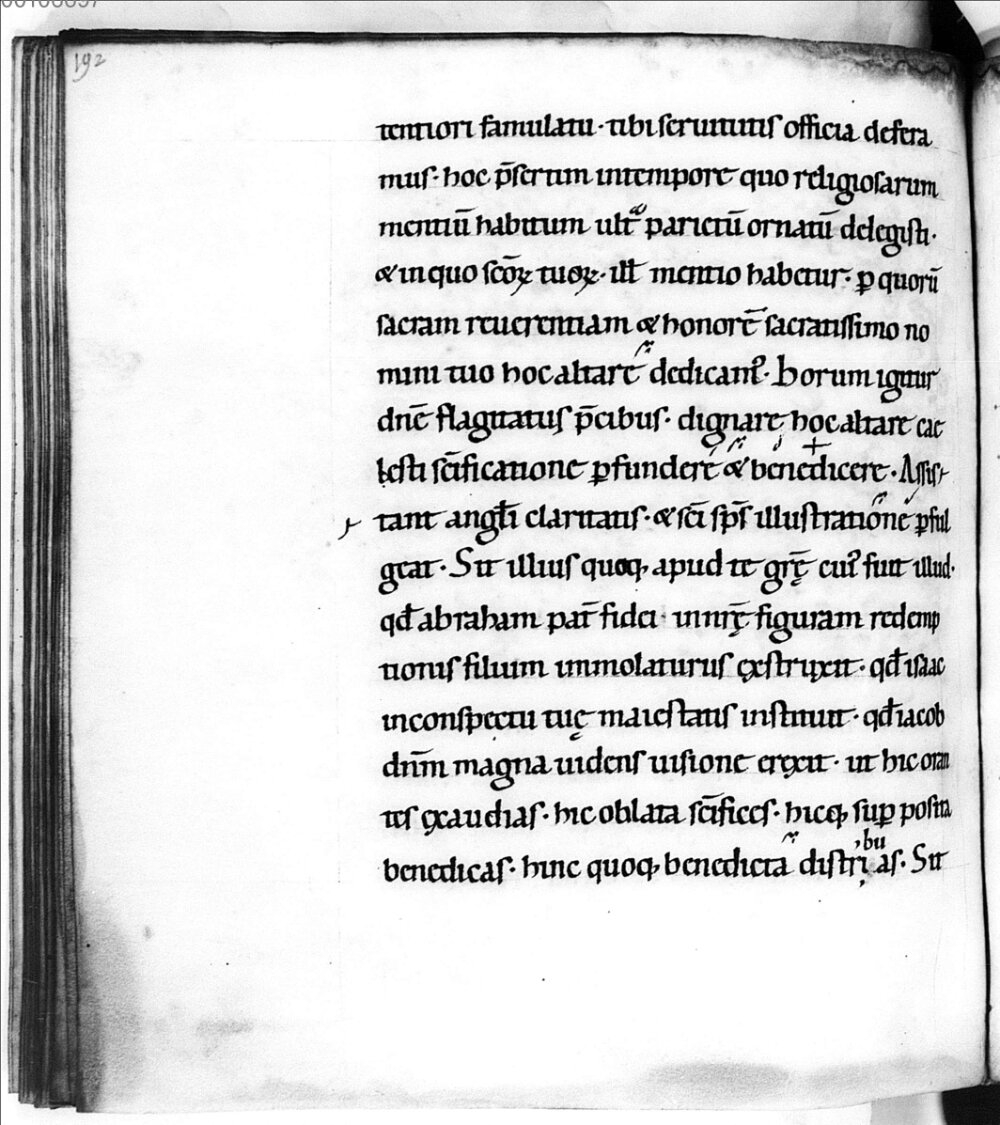 192
tentiori famulatu · tibi seruitutis officia defera
mus · hoc p̄sertim intempore quo religiosarum
mentiū habitum ult̄ᵃ parietū ornatū delegisti ·
& in quo sc̄oꝝ tuoꝝ · ill̄ mentio habetur · ꝑ quorū
sacram reuerentiam & honorē sacratissimo no
mini tuo hoc altare dedicant᷒ · Horum igitur
dn̄e flagitatus p̄cibus · dignare hoc altare cae
lesti sc̄ificatione ꝑfundere & bene+dicere · Assis
tant angl̄i claritatis · & sc̄i sp̄s illustratione ꝑful
geat · Sit illius quoqꝫ apud te gr̄ę cui᷒ fuit illud ·
qd̄ abraham pat̄ fidei · in nr̄ę figuram redemp
tionis filium immolaturus ęxstruxit · qd̄ isaac
inconspectu tuę maiestatis instituit · qd̄ iacob
dn̄m magna uidens uisione erexit · ut hic oran
tes ęxaudias · hic oblata sc̄ifices · hicqꝫ suꝑ posita
benedicas · hinc quoqꝫ benedicta distribuas · Sit